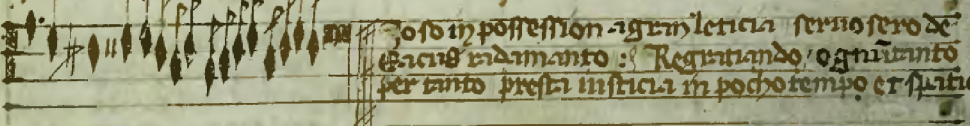 Zoso in possession agran leticia seruo sero de
Eacus radamanto : Regratiando ognu tanto
per tanto presta iusticia in pocho tempo et spatio